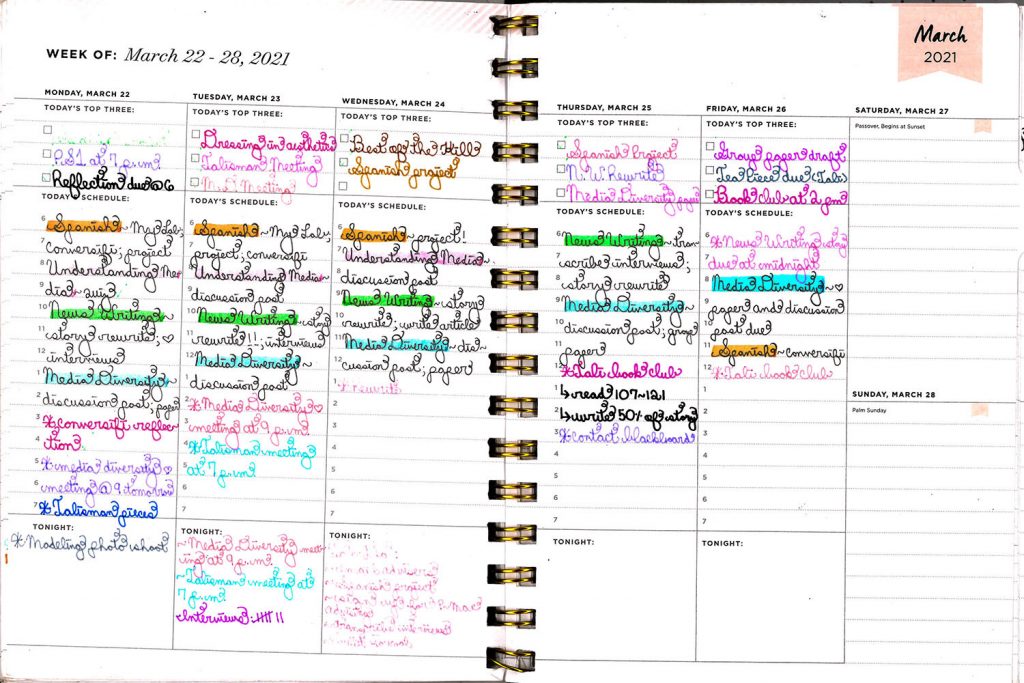 WEEK OF: March 22 - 28, 2021
MONDAY, MARCH 22
TODAY'S TOP THREE:
PS1 at 7 p.m.
Reflection due @ 6
TODAY'S SCHEDULE:
6 Spanish ~ My Lab;
7 conversifi; project
8 Understanding Me-
9 dia ~ quiz
10 News Writing ~
11 story rewrite; ♡
12 interviews
1 Media Diversity ~
2 discussion post; paper
3 *conversifi reflec-
4 tion
5 *media diversity ♡
6 meeting @ 9 tomorrow
7 *Talisman pieces
TONIGHT:
*Modeling photo shoot
TUESDAY, MARCH 23
TODAY'S TOP THREE:
Dressing in aesthetics
Talisman Meeting
M.D. Meeting
TODAY'S SCHEDULE:
6 Spanish ~ My Lab;
7 project; conversifi
8 Understanding Media ~
9 discussion post
10 News Writing ~ story
11 rewrite!!; interviews
12 Media Diversity ~
1 discussion post
2 *Media Diversity ♡
3 meeting at 9 p.m.
4 *Talisman meeting
5 at 7 p.m.
6
7
TONIGHT:
~Media Diversity meet-
ing at 9 p.m.
~Talisman meeting at
7 p.m.
Interviews: 
WEDNESDAY, MARCH 24
TODAY'S TOP THREE:
Best of the Hill
Spanish project
TODAY'S SCHEDULE:
6 Spanish ~ project!
7 Understanding Media ~
8 discussion post
9 News Writing ~ story
10 rewrite; write article
11 Media Diversity ~ dis-
12 cussion post; paper
1 *rewrite
2
3
4
5
6
7
TONIGHT:
Spanish project
transcribe interviews
THURSDAY, MARCH 25
TODAY'S TOP THREE:
Spanish Project
N.W. Rewrite
Media Diversity paper
TODAY'S SCHEDULE:
6 News Writing ~ tran-
7 scribe interviews;
8 story rewrite
9 Media Diversity ~
10 discussion post; group
11 paper
12 *Tali book club
1 ↳ read 107-121
2 ↳ write 50% of story
3 *contact blackboard
4
5
6
7
TONIGHT:
FRIDAY, MARCH 26
TODAY'S TOP THREE:
Group paper draft
Tea Piece due (Talis)
Book club at 2 pm
TODAY'S SCHEDULE:
6 *News Writing story
7 due at midnight
8 Media Diversity ~ ♡
9 paper and discussion
10 post due
11 Spanish ~ conversifi
12 *Tali book club
1
2
3
4
5
6
7
TONIGHT:
March
2021
SATURDAY, MARCH 27
Passover, Begins at Sunset
SUNDAY, MARCH 28
Palm Sunday